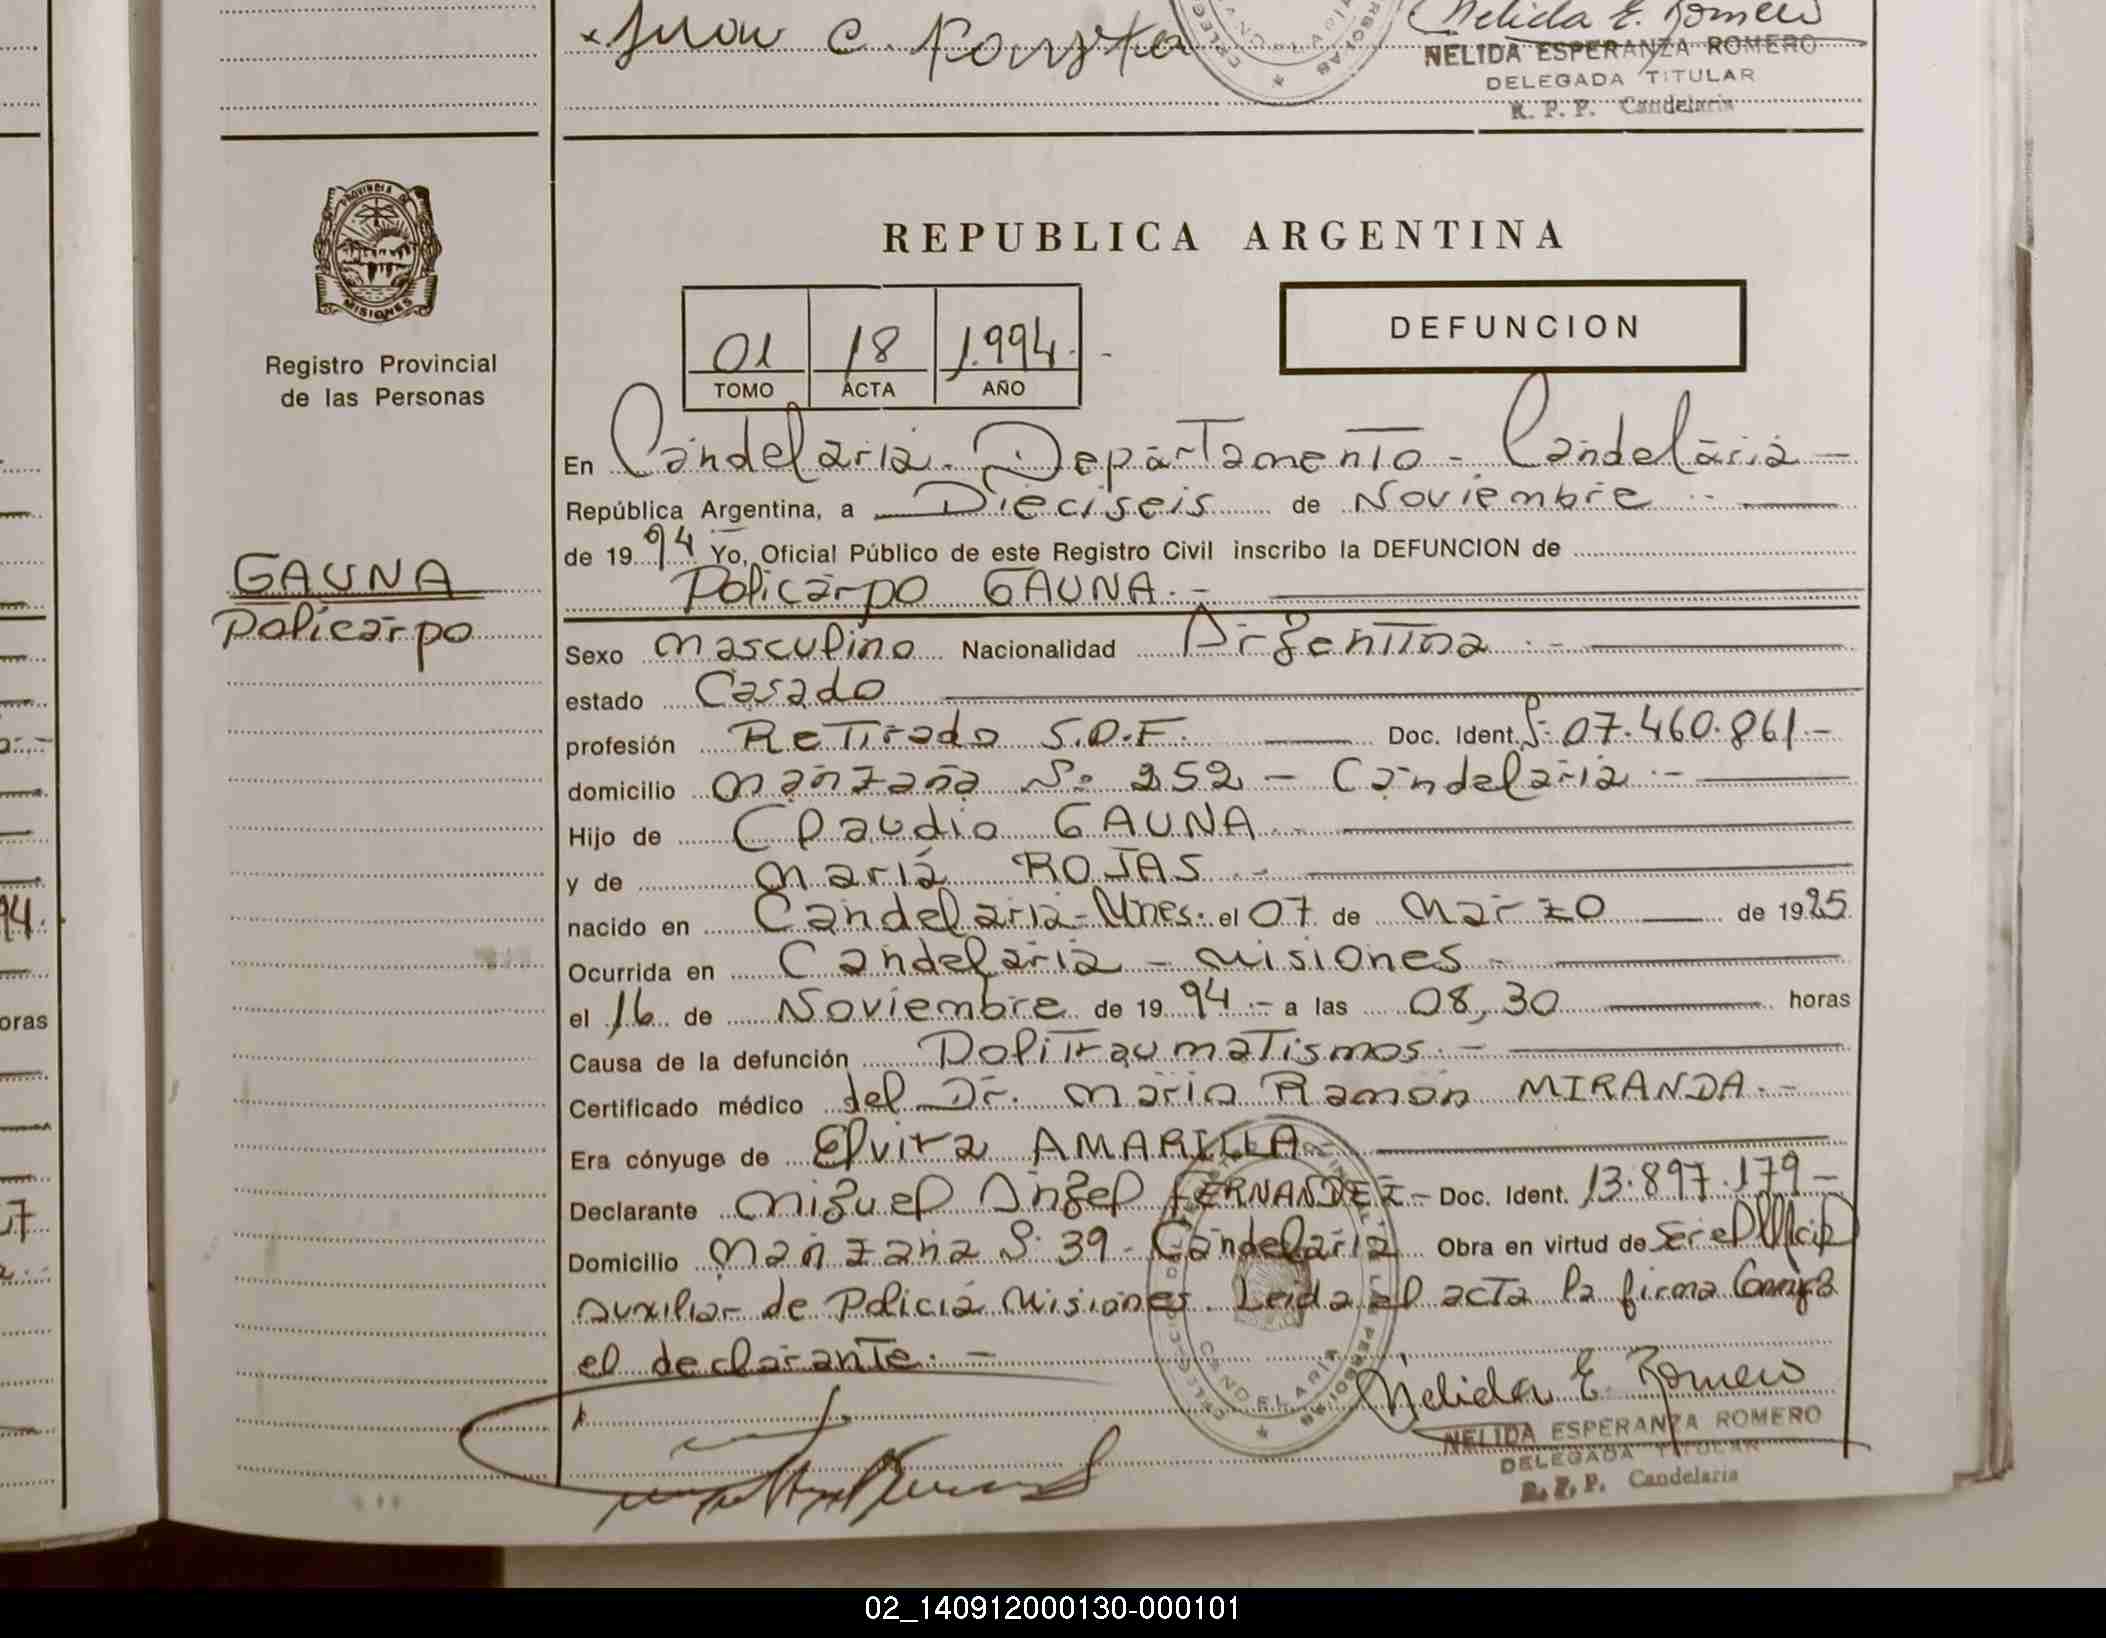 Juan C.
Nelida E. Romero
NELIDA ESPERANZA ROMERO
DELEGADA TITULAR
R. P. P. Candelaria
PROVINCIA DE
MISIONES
Registro Provincial
de las Personas
REPUBLICA ARGENTINA
01 18 1.994.-
TOMO ACTA AÑO
DEFUNCION
En Candelaria. Departamento - Candelaria -
República Argentina, a Dieciseis de Noviembre
de 19 94 Yo, Oficial Público de este Registro Civil inscribo la DEFUNCION de
Policarpo GAUNA.-
GAUNA
Policarpo
Sexo Masculino Nacionalidad Argentina.-
estado Casado
profesión Retirado S.O.F. Doc. Ident. 07.460.861.-
domicilio Manzana Nº 252 - Candelaria.-
Hijo de Claudio GAUNA.-
y de María ROJAS.-
nacido en Candelaria-Mnes. el 07 de Marzo de 1925
Ocurrida en Candelaria - Misiones -
el 16 de Noviembre de 19 94.- a las 08,30 horas
Causa de la defunción Politraumatismos.-
Certificado médico del Dr. Mario Ramón MIRANDA.-
Era cónyuge de Elvira AMARILLA.-
Declarante Miguel Angel FERNANDEZ.- Doc. Ident. 13.897.179-
Domicilio Manzana Nº 39 - Candelaria Obra en virtud de Ser el
auxiliar de Policia Misiones. Leida el acta la firma Conmigo
el declarante.-
CANDELARIA
Nelida E. Romero
NELIDA ESPERANZA ROMERO
DELEGADA TITULAR
R. P. P. Candelaria
94.
oras
02_140912000130-000101